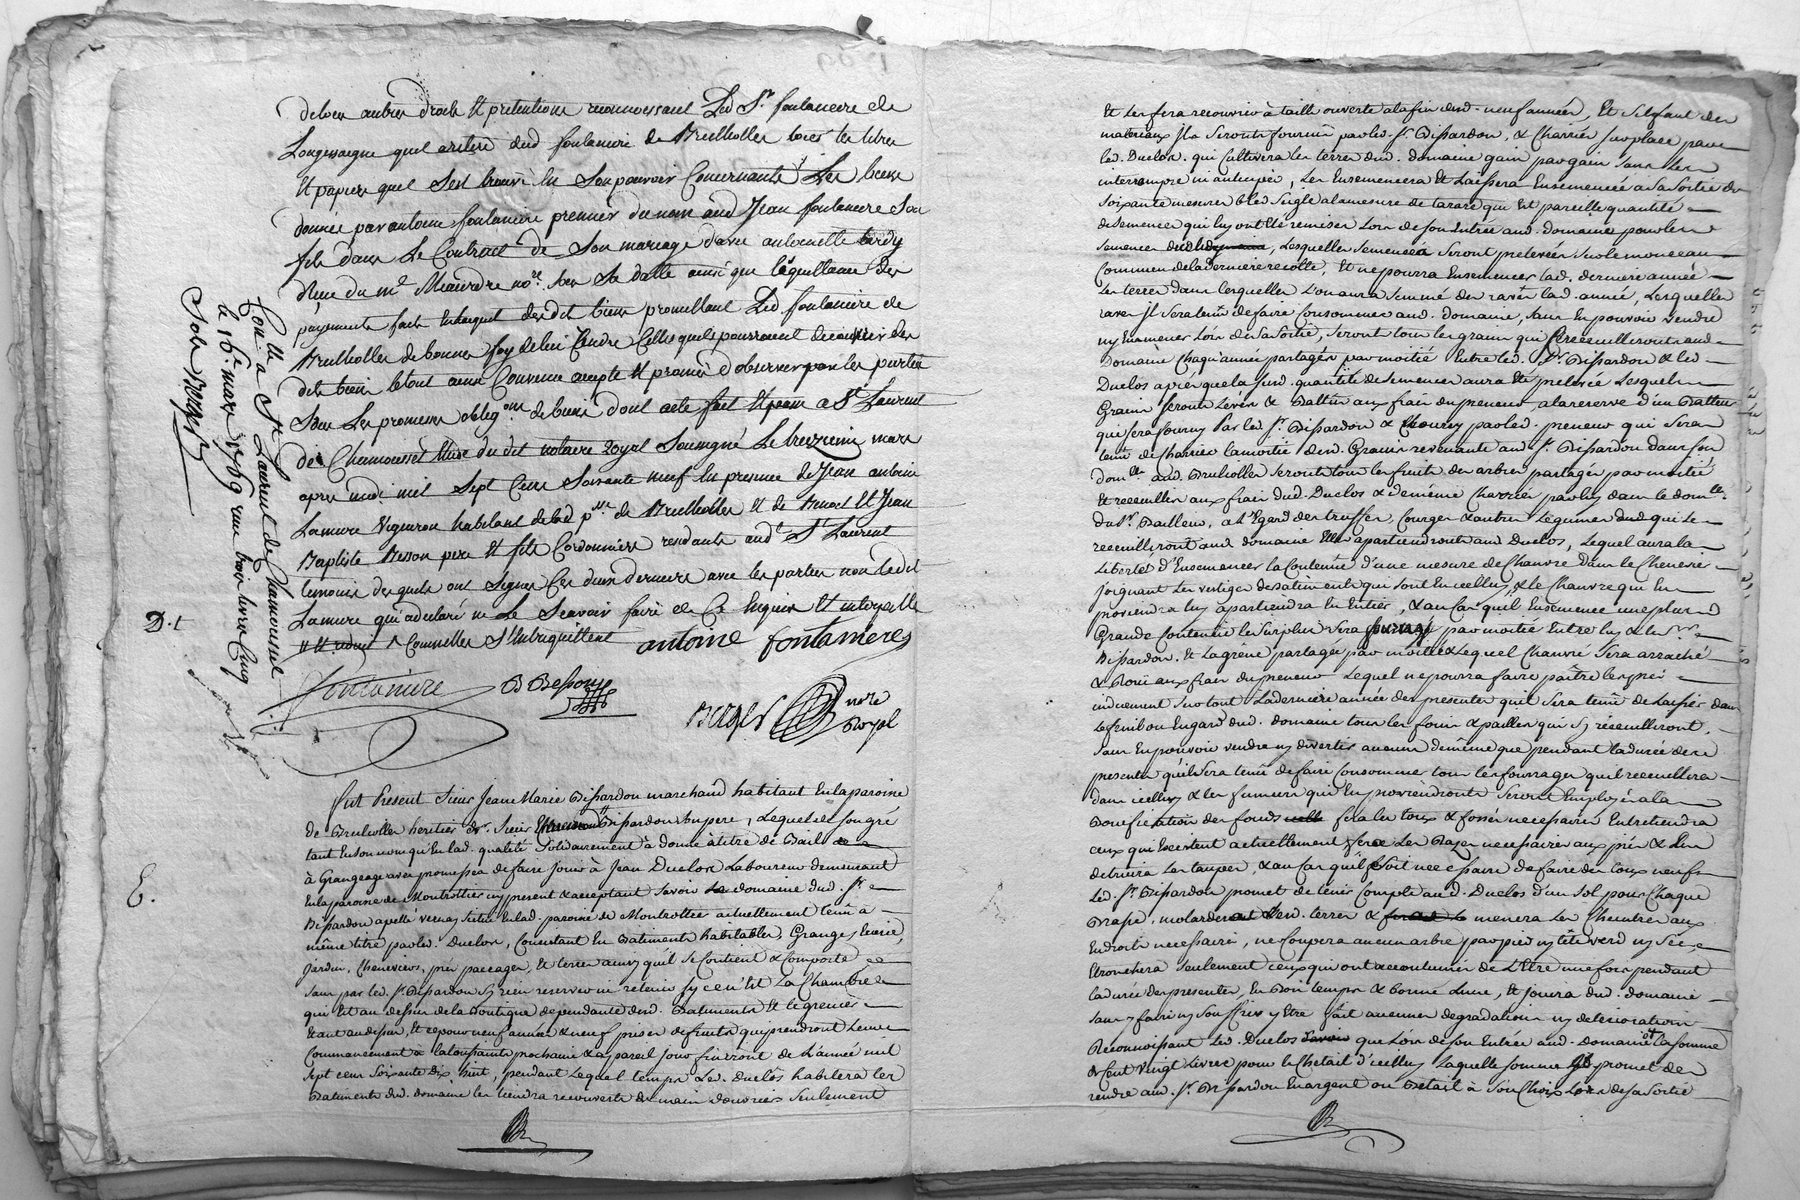 de tous autres droits et pretentions reconnoissant Led Sr. fontaniere de
Longessaigne quel a retiré dud fontaniere de Brulliolles tous les titres
Et papiers quel s'est trouvé En son pouvoir Concernants Les biens
donnés par antoine fontaniere premier du nom aud Jean fontaniere son
fils dans Le Contract de son mariage avec antoinette
Reçu du Me. no.re sous sa datte ainsi que la quittance des
payements faits desdit biens promettant Led. fontaniere de
Brulliolles de bonne foy de lui Rendre Celles quels pourroient decouvrir des
dits biens le tout ainsi Convenu accepté Et promis d'observer par les parties
Sous Les promesses oblig.ons de biens dont acte fait Et passé a St Laurent
de Chamousset Etude du dit notaire Royal Soussigné Le treizieme mars
apres midi mil Sept Cent Soixante neuf En presence de Jean antoine
Lamure Vigneron habitant de lad p.sse de Brulliolles Et de Benoit Et Jean
Baptiste Besson pere Et fils Cordonniers residants aud St Laurent
temoins desquels ont Signés Ces deux derniers avec les parties non Ledit
Lamure qui a declaré ne Le Scavoir faire de Ce Enquis Et interpellé
antoine fontanieres
fontaniere B Besson
Berger nore
Royal
Con.lle a St Laurent de Chamousset
le 16e. mars 1769 reçu trois livres Cinq
Sols Berger
D.t
E.
fut Present Sieur Jean Marie Bissardon marchand habitant En la paroisse
de Brulliolles heritier de Sieur Bissardon Son pere, Lequel de son gré
tant En son nom qu'En lad. qualité Solidairement à donné à titre de Bail
à Grangeage avec promesses de faire Jouir à Jean Duclos Laboureur demeurant
En la paroisse de Montrottier icy present & acceptant Savoir Le domaine dud. Sr.
Bissardon apellé vernay Situé En lad. paroisse de Montrottier actuellement tenu à
même titre par led. Duclos, Consistant En Batiments habitables, Granges, Ecurie,
Jardin, Cheneviers, prés paccages, Et terres ainsy quil Se Contient & Comporte
Sans par led. Sr. Bissardon Sy rien reserver ni retenir Sy ce n'est La Chambre
qui Est au dessus de la Boutique dependante desd. Batiments Et le grenier
Etant au dessus, Et ce pour neuf années & neuf prises de fruits qui prendront Leur
Commancement à la toussaints prochaine & a pareil jour finiront de L'année mil
Sept cent Soixante dix huit, pendant Lequel temps Led. Duclos habitera les
Batiments dud. domaine les tiendra recouverts de main d'ouvriers Seulement
Et les fera recouvrir à taille ouverte a la fin desd. neuf années, Et S'il faut des
materiaux Ils Seront fournis par led. Sr. Bissardon, & Charriés Sur place par
led. Duclos. qui Cultivera les terres dud. domaine gain par gain Sans les
interrompre ni anticiper, Les Ensemencera Et Laissera Ensemencées a Sa Sortie de
Soixante mesures bled Seigle a la mesure de tarare qui Est pareille quantité
de Semence qui luy ont Eté remises Lors de Son Entrée aud. domaine pour les
Semences, Lesquelles Semences Seront prelevées Sur le monceau
Commun de la derniere recolte, Et ne pourra Ensemencer lad. derniere année
Les terres dans lesquelles L'on aura Semmé des raves lad. année, Lesquelles
raves Il Sera tenu de faire Consommer aud. domaine, Sans En pouvoir vendre
ny Emmener Lors de Sa Sortie, Seront tous les grains qui Se receuilliront aud.
Domaine Chaqu'année partagés par moitié Entre led. Sr. Bissardon & led.
Duclos aprés que la Susd. quantité de Semences aura Eté prelevée Lesquels
Grains Seront Levés & Battus aux frais du preneur, a la reserve d'un Batteur
qui Sera fourny Par led. Sr. Bissardon & Nourry par led. preneur qui Sera
tenu de Charrier la moitié desd. Grains revenants aud. Sr. Bissardon dans Son
dom.lle aud. Brulliolles Seront tous les fruits des arbres partagés par moitié
Et receuillis aux frais dud. Duclos & de même Charriés par luy dans le dom.lle
du Sr. Bailleur, a L'Egard des truffes, Courges & autres Legumes dud qui Se
receuilliront aud domaine Elles apartiendront aud Duclos, Lequel aura la
Liberté d'Ensemencer la Contenue d'une mesure de Chanvre dans le Chenevier
joignant Les vestiges des batiments qui sont En icelluy, & le Chanvre qui En
proviendra luy apartiendra En Entier, & au Cas qu'il Ensemence une plus
Grande Contenue le Surplus Sera par moitié Entre luy & led. Sr.
Bissardon. Et La graine partagée par moitié & Lequel Chanvre Sera arraché
& Roui aux frais du preneur Lequel ne pourra faire paitre les prés
induement Sur tout La derniere année des presentes qu'il Sera tenu de Laisser dans
Le fenil ou Engard dud. domaine tous les foins & pailles qui S'y receuilleront,
Sans En pouvoir vendre ny divertir aucuns de même que pendant la durée des
presentes qu'il Sera tenu de faire Consommer tous les fourrages qu'il receuillira
dans icelluy & les fumiers qui En proviendront Seront Employés a la
Bonification des fonds fera les toux & fossés necessaires Entretiendra
ceux qui Existent actuellement, fera Les Razes necessaires aux prés & En
detruira les taupes, & au Cas qu'il Soit necessaire de faire des toux neufs
Led. Sr. Bissardon promet de tenir Compte aud. Duclos d'un Sol pour Chaque
Brasse, desd. terres & menera Les Cheintres aux
Endroits necessaires, ne Coupera aucun arbre par pied ny tête verd ny Sec,
Etronchera Seulement ceux qui ont accoutumés de L'Etre une fois pendant
La durée des presentes, En Bon temps & bonne Lune, Et jouira dud. domaine
Sans y faire ny Souffrir y Etre fait aucunes degradations ny deterioration
Reconnoissant Led. Duclos que Lors de Son Entrée aud. Domaine la Somme
de Cent vingt Livres pour le Chetail d'icelluy Laquelle Somme Il promet de
rendre aud. Sr. Bissardon En argent ou Betail à Son Choix Lors de Sa Sortie